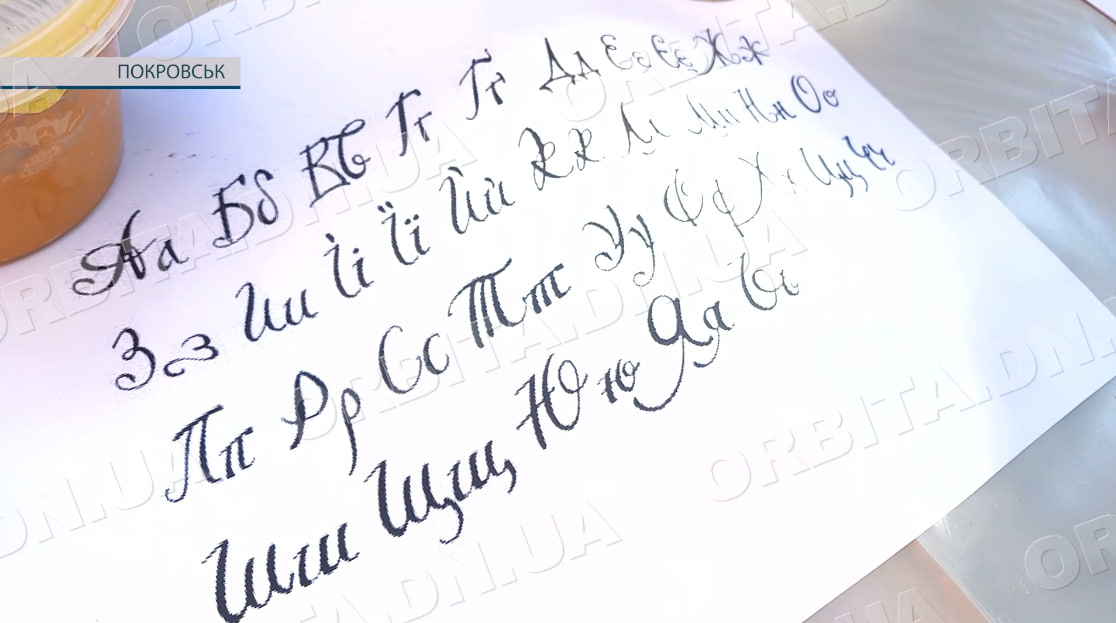 ПОКРОВСЬК
Аа Бб Вв Гг Ґґ Дд Ее Єє Жж
Зз Ии Іі Її Йй Кк Лл Мм Нн Оо
Пп Рр Сс Тт Уу Фф Хх Цц Чч
Шш Щщ Юю Яя Ьь
ORBITA.DN.UA